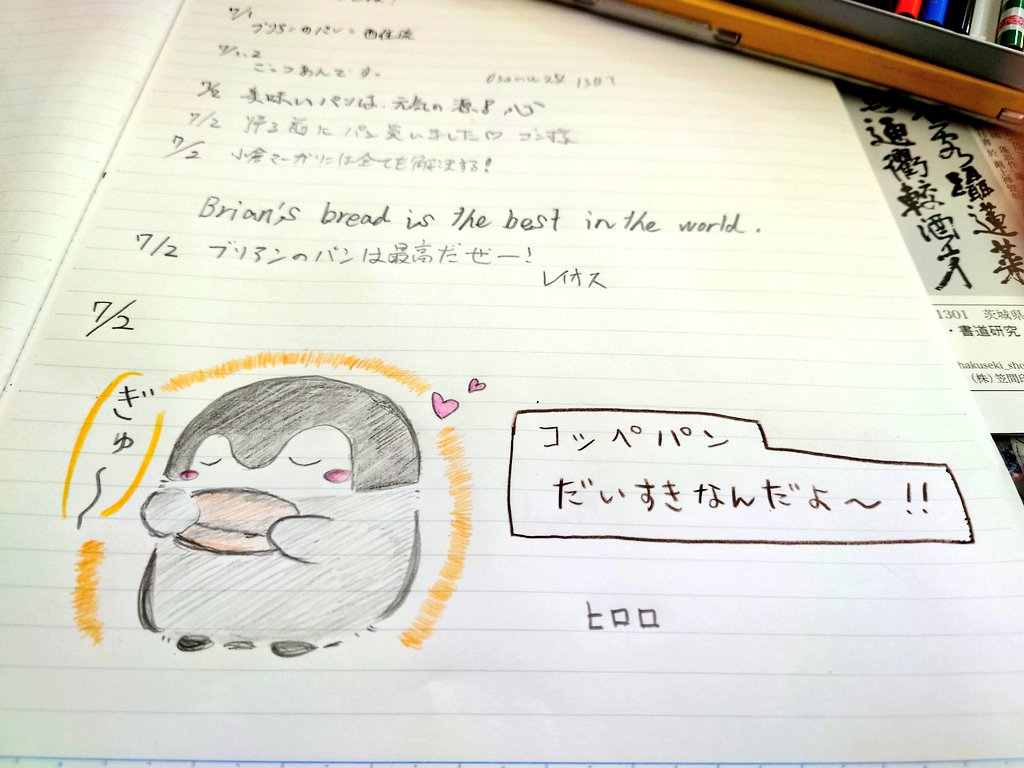 7/1
ブリアンのパン=西住流
7/1.2
ごっつあんです。
7/2 美味いパンは、元気の源!
7/2 帰る前にパン買いました♡
7/2 小倉マーガリンは全てを解決する!
Brian's bread is the best in the world.
7/2 ブリアンのパンは最高だぜー!
レイオス
7/2
ぎゅ〜
コッペパン
だいすきなんだよ〜!!
ヒロロ
通衢較酒
蓬莱
1301 茨城県
・書道研究
hakuseki_sho
(株)笠間印